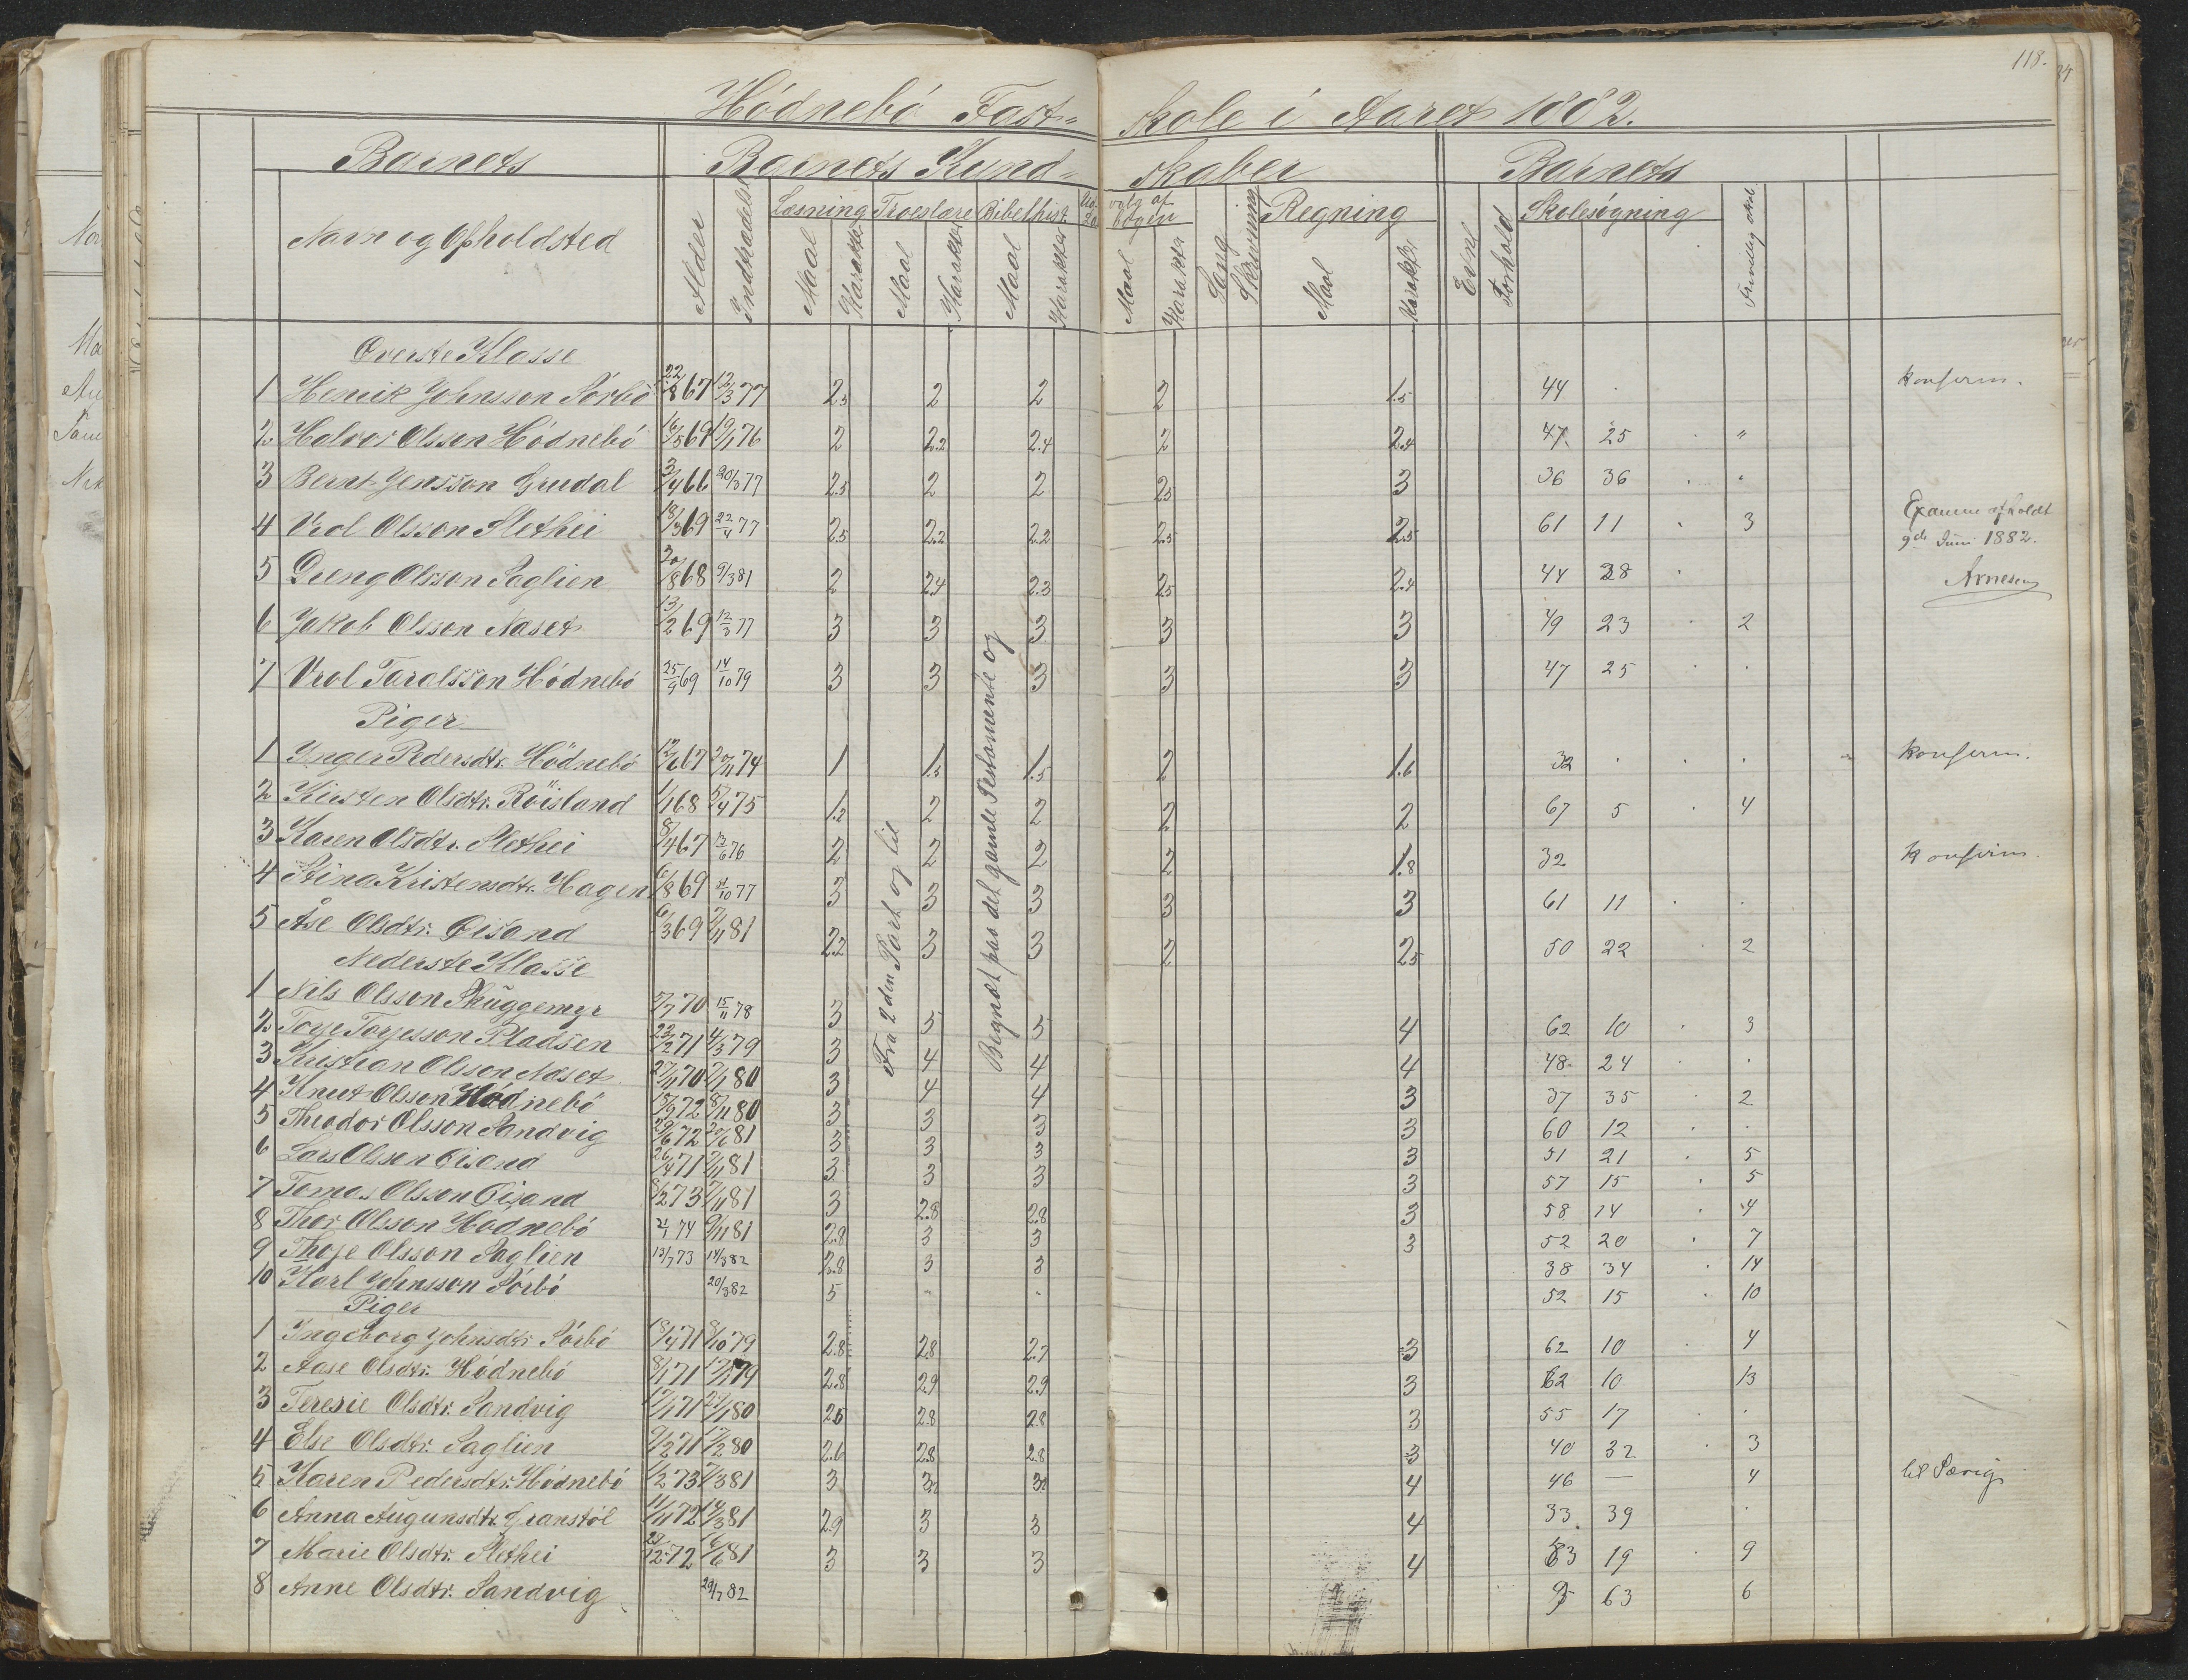 118.
Hödnebö Fast= skole i Aaret 1882.
Barnets Barnets Kund= skaber Barnets
Navn og Opholdsted Alder Indtrædelse Læsning Troeslære Bibelhist. Udvalg af Lægeb. Sang Skrivning Regning Evne Forhold Skolesøgning
Maal Karakter Maal Karakter Maal Karakter Maal Karakter Maal Karakter
Øverste Klasse
1 Henrik Johnsson Sörbö 22/8 67 12/3 77 2.5 2 2 2 1.5 44 konferm.
2 Halvor Olsson Hödnebö 16/5 69 19/1 76 2 2.2 2.4 2 2.4 47 25 "
3 Bernt Jensson Grudal 3/4 66 20/3 77 2.5 2 2 2.5 3 36 36
4 Vrol Olsson Slethei 18/3 69 22/4 77 2.5 2.2 2.2 2.5 2.5 61 11 3 Examen afholdt
9de Juni 1882.
5 Dreng Olsson Saglien 20/8 68 9/3 81 2 2.4 2.3 2.5 2.4 44 28 Arnesen
6 Jakob Olsson Naset 13/2 69 12/3 77 3 3 3 3 3 49 23 2
7 Vrol Taralsson Hödnebö 25/9 69 14/10 79 3 3 3 3 3 47 25
Piger
1 Inger Pedersdtr. Hödnebö 12/6 67 20/11 74 1 1.5 1.5 2 1.6 32 konferm.
2 Kirsten Olsdtr. Röisland 1/1 68 5/4 75 1.2 2 2 2 2 67 5 4
3 Karen Olsdtr. Slethei 8/4 67 13/6 76 2 2 2 2 1.8 32 konferm.
4 Stina Kristensdtr. Hagen 6/8 69 31/10 77 3 3 3 3 3 61 11
5 Åse Olsdtr. Öisand 6/3 69 7/11 81 2.2 3 3 2 2.5 50 22 2
Fra 2den Part og til
Begyndt paa det gamle Testamente og
Nederste Klasse
1 Nils Olsson Skuggemyr 5/7 70 15/11 78 3 5 5 4 62 10 3
2 Torje Torjesson Pladsen 23/2 71 4/3 79 3 4 4 4 48 24
3 Kristian Olsson Naset 27/11 70 7/1 80 3 4 4 3 37 35 2
4 Knut Olsson Hödnebö 15/9 72 8/11 80 3 3 3 3 60 12
5 Theodor Olsson Sandvig 29/6 72 20/6 81 3 3 3 3 51 21 5
6 Lars Olsson Öisand 26/4 71 7/11 81 3 3 3 3 57 15 5
7 Tomas Olsson Öisand 8/2 73 7/11 81 3 2.8 2.8 3 58 14 4
8 Thor Olsson Hödnebö 2/1 74 9/11 81 2.8 3 3 3 52 20 7
9 Thoje Olsson Saglien 13/7 73 14/3 82 2.8 3 3 38 34 14
10 Karl Johnsson Sörbö 20/3 82 5 52 15 10
Piger
1 Ingeborg Johnsdtr. Sörbö 18/4 71 8/10 79 2.8 2.8 2.7 3 62 10 4
2 Aase Olsdtr. Hödnebö 8/1 71 79 2.8 2.9 2.9 3 62 10 13
3 Teresie Olsdtr. Sandvig 17/1 71 29/1 80 2.5 2.8 2.8 3 55 17
4 Else Olsdtr. Saglien 9/2 71 17/2 80 2.6 2.8 2.8 3 40 32 3
5 Karen Pedersdtr. Hödnebö 1/2 73 7/3 81 3 4 46 — 4
6 Anna Augunsdtr. Granstöl 11/11 72 14/3 81 2.9 3 3 4 33 39
7 Marie Olsdtr. Slethei 29/12 72 16/6 81 3 3 3 4 53 19 9
8 Anne Olsdtr. Sandvig 29/7 82 9 63 6